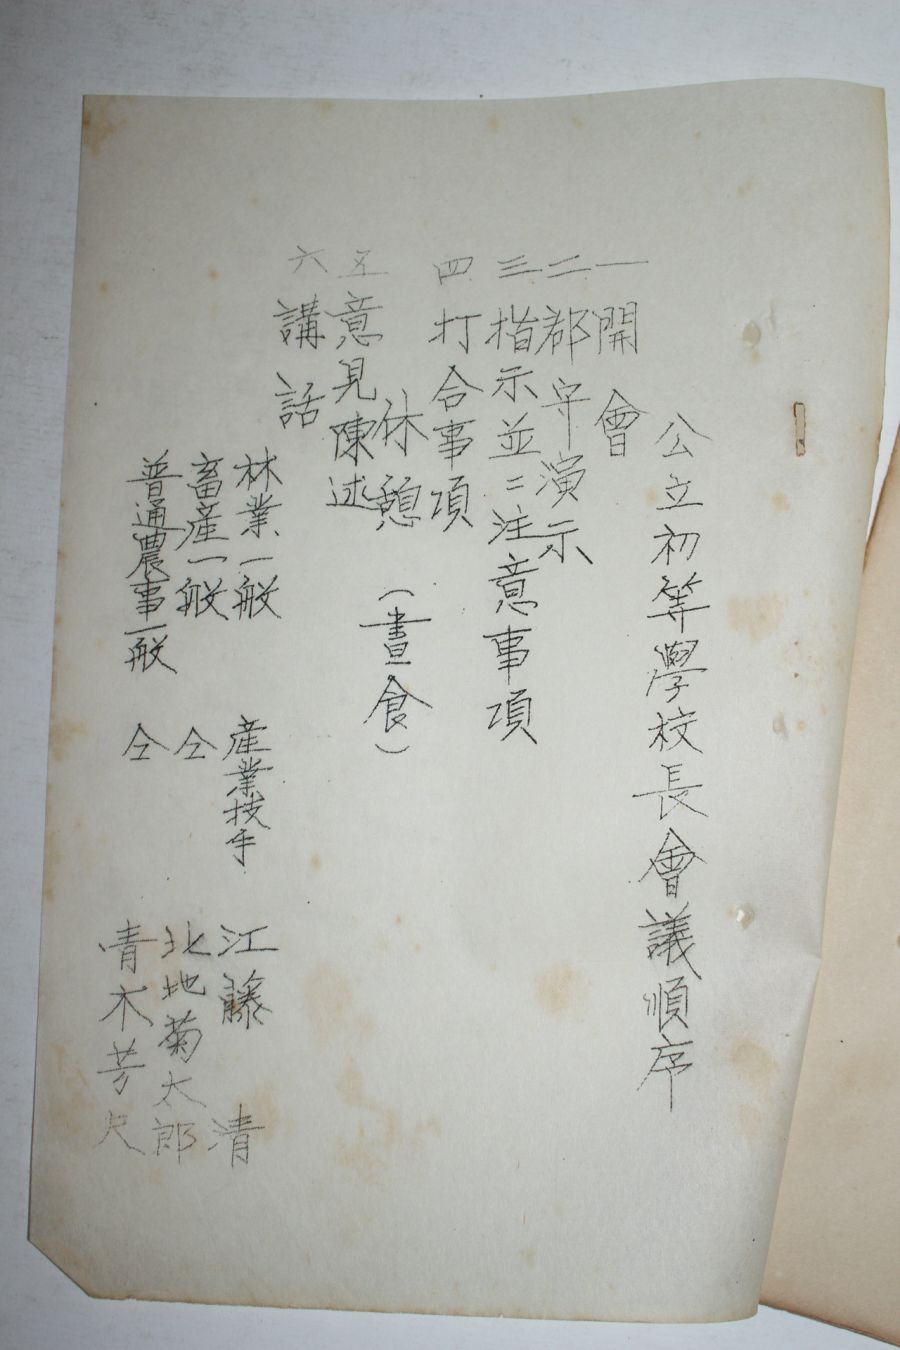 公立初等學校長會議順序
一 開會
二 郡守演示
三 指示並ニ注意事項
四 打合事項
休憩 （晝食）
五 意見陳述
六 講話
林業一般 産業技手 江藤 清
畜産一般 仝 北地菊太郎
普通農事一般 仝 青木芳夫